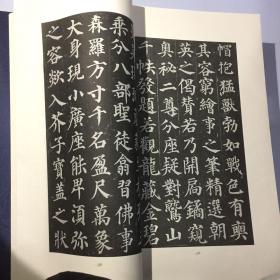 帽抱猛獸勃如戰色有奭
其容窮繪事之筆精選朝
英之偈贊若乃開扃鐍窺
奧秘二尊分座疑對鷲山
千帙發題若觀龍藏金碧
乘分八部聖徒翕習佛事
森羅方寸千名盈尺萬象
大身現小廣座能卑須弥
之容欻入芥子寶蓋之狀